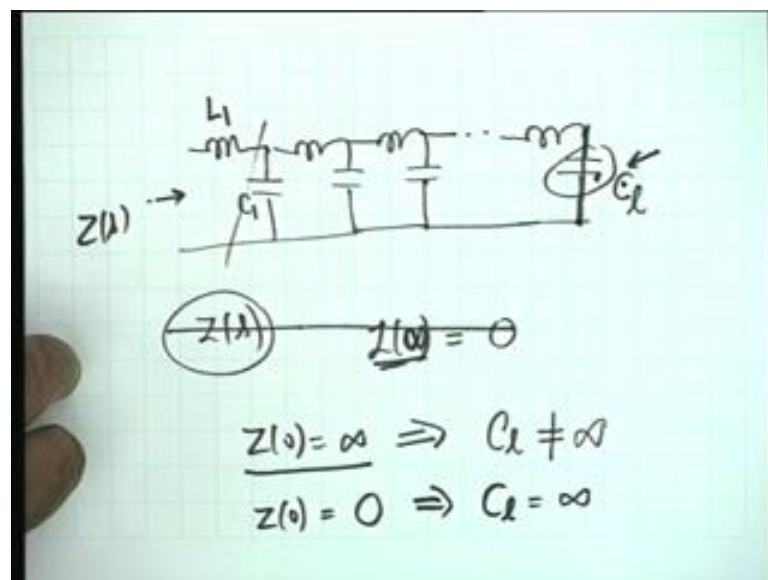 L1
C1
Cl
Z(s) →
Z(s) Z(∞) = 0
Z(0) = ∞ ⇒ Cl ≠ ∞
Z(0) = 0 ⇒ Cl = ∞